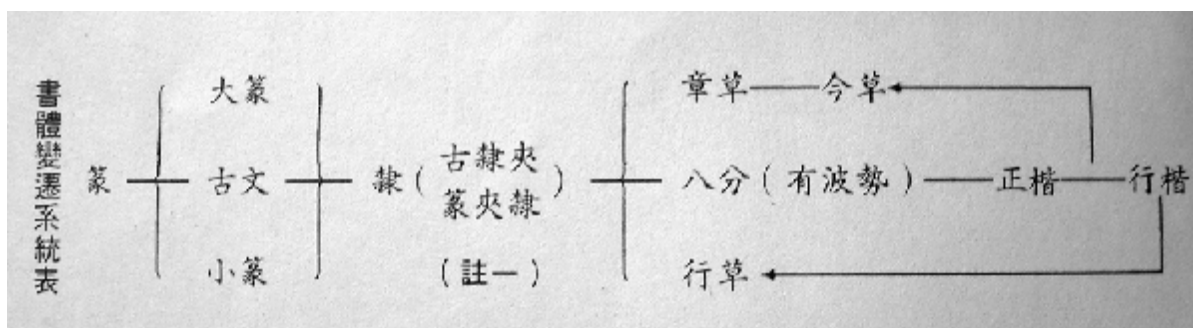 書體變遷系統表
篆
大篆
古文
小篆
隸(古隸夾篆夾隸)
(註一)
章草——今草
八分(有波勢)——正楷——行楷
行草